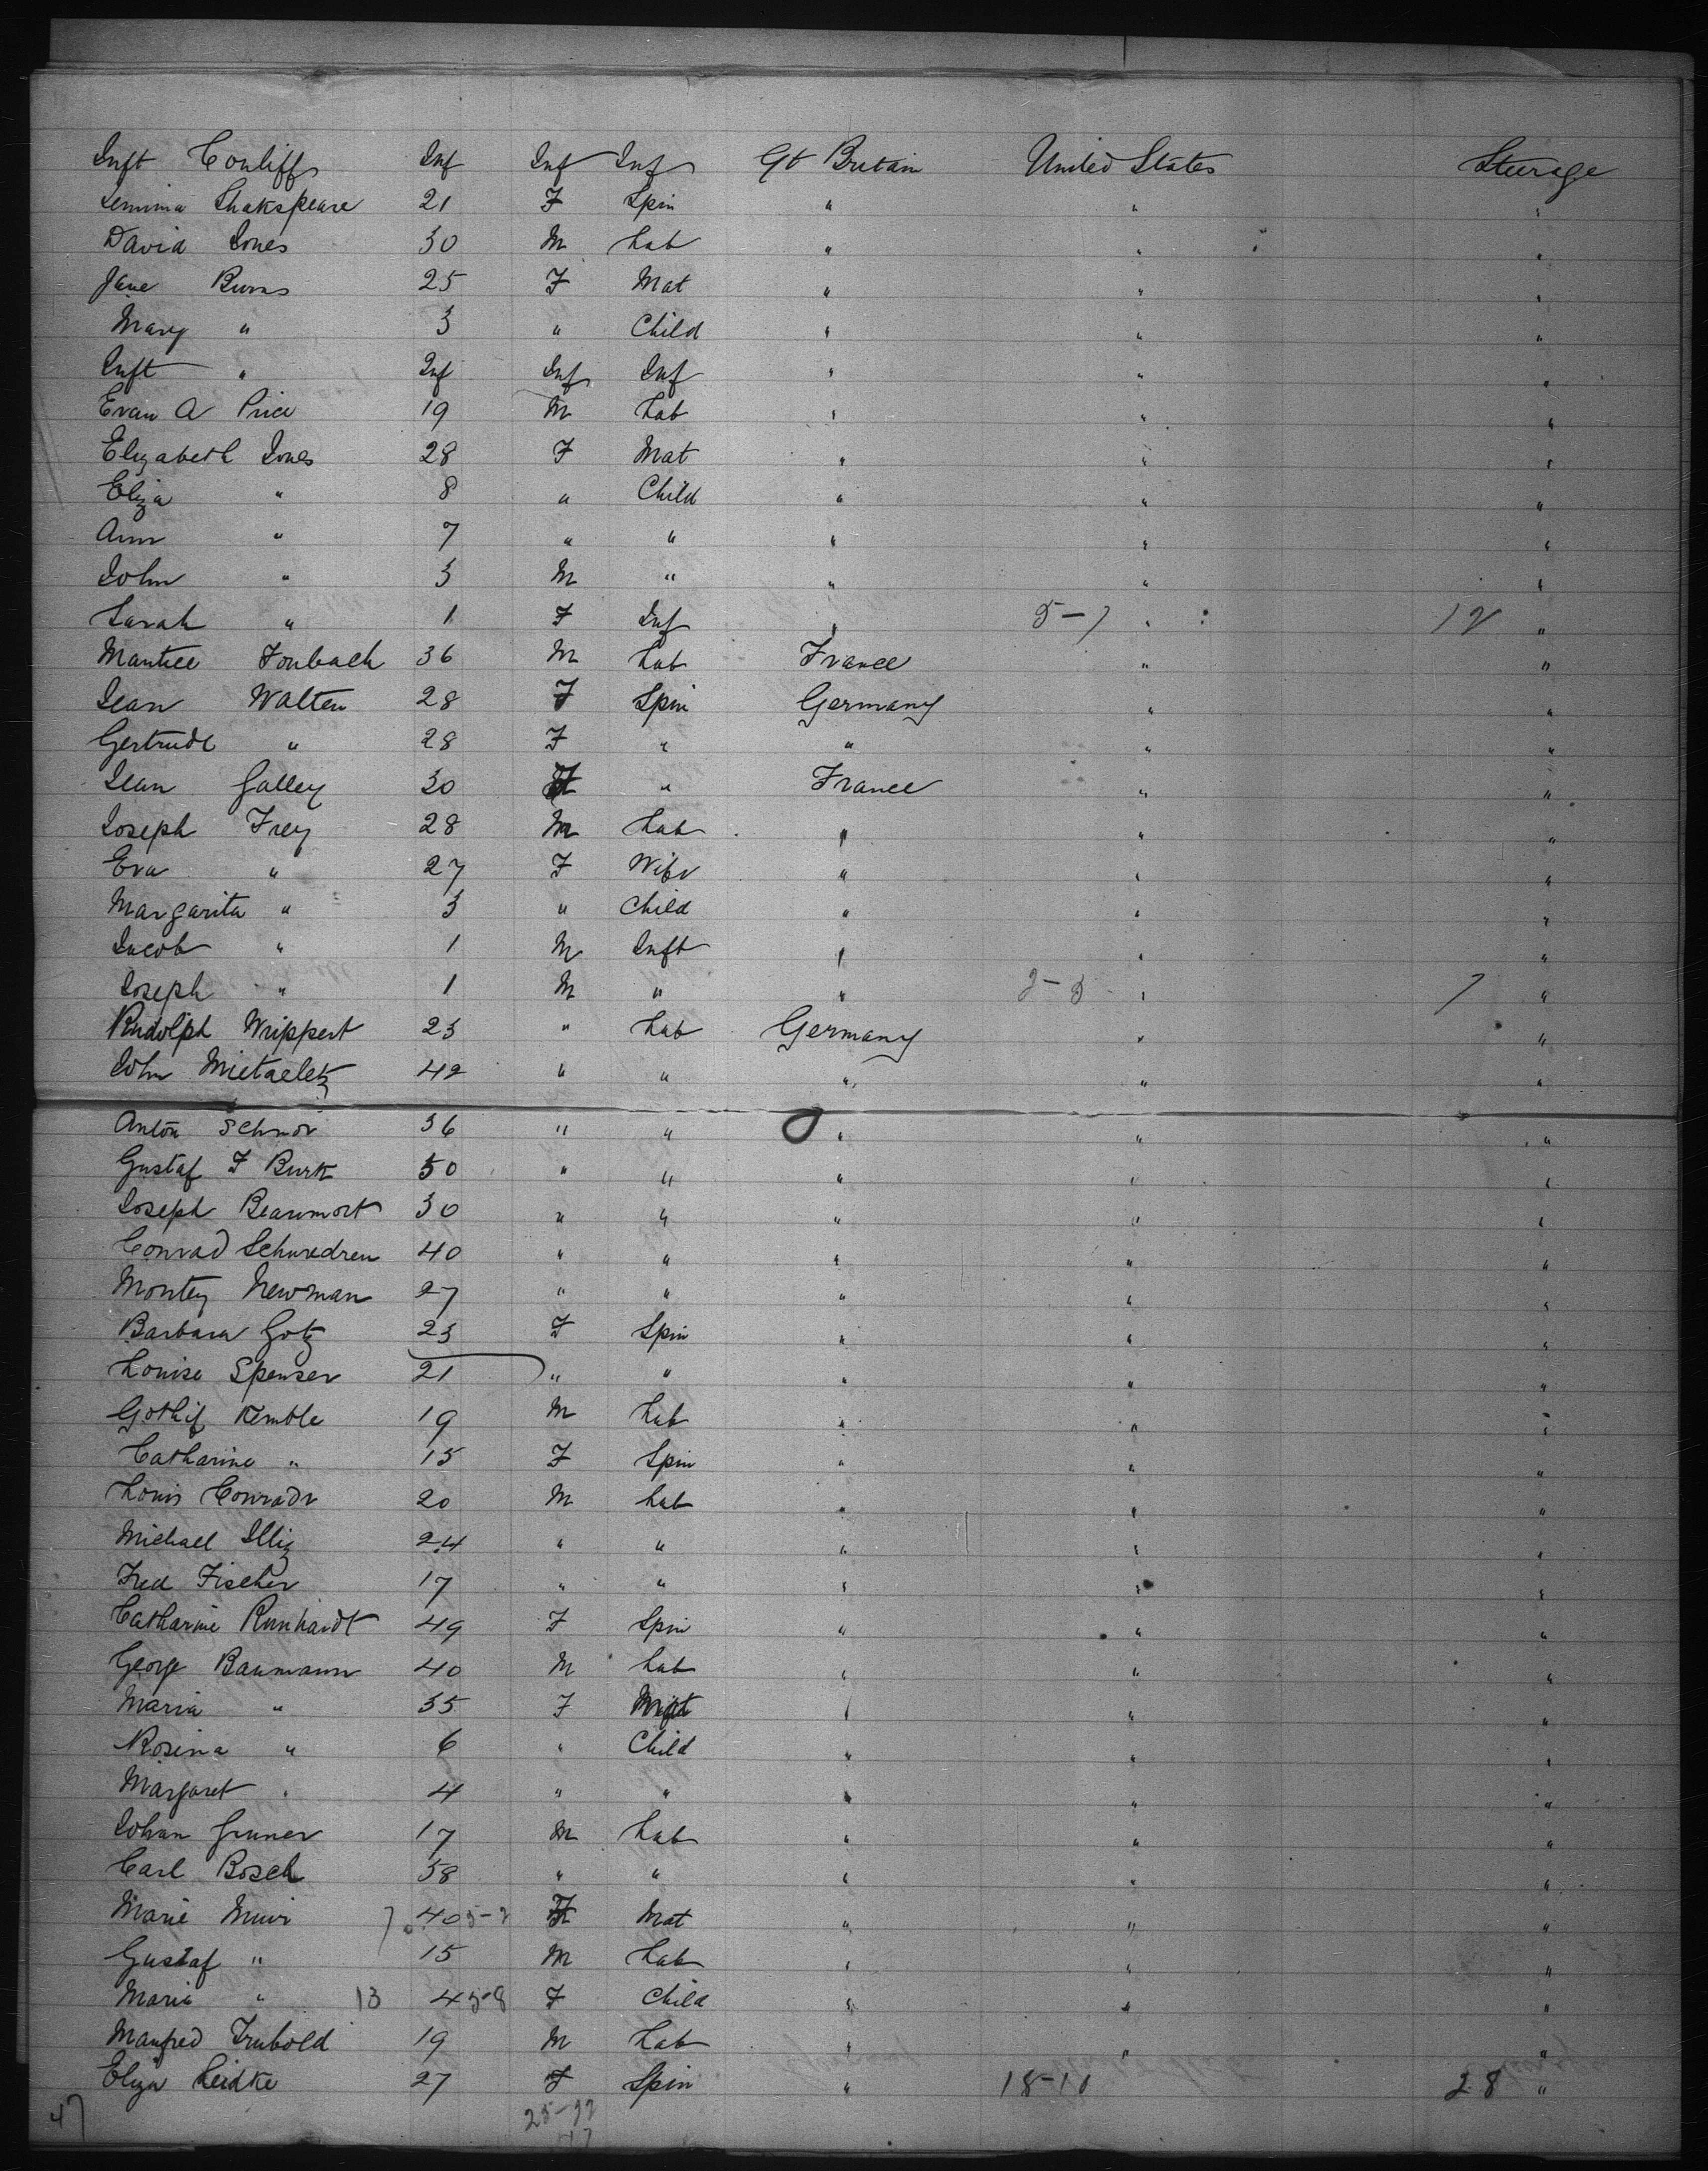 Inft Conliffs Inf Inf Inf Gt Britain United States Steerage
Jemima Shakspeare 21 F Spin " " "
David Jones 30 M Lab " " "
Jane Burns 25 F Mat " " "
Mary " 3 " Child " " "
Inft " Inf Inf Inf " " "
Evan A Price 19 M Lab " " "
Elizabeth Jones 28 F Mat " " "
Eliza " 8 " Child " " "
Ann " 7 " " " " "
John " 3 M " " " "
Sarah " 1 F Inf " 5-7 " 12 "
Fonbach 36 M Lab France " "
Jean Walten 28 F Spin Germany " "
Gertrude " 28 F " " " "
Jean Galley 30 F " France " "
Joseph Frey 28 M Lab " " "
Eva " 27 F Wife " " "
Margarita " 3 " Child " " "
Jacob " 1 M Inft " " "
Joseph " 1 M " " " 7 "
Rudolph Wrippert 23 " Lab Germany " "
John Mietaeletz 42 " " " " "
Anton Schnor 36 " " " " "
Gustaf F Burk 50 " " " " "
Joseph Beaumont 30 " " " " "
Conrad Schwedren 40 " " " " "
Montey Newman 27 " " " " "
Barbara Gotz 23 F Spin " " "
Louise Spenser 21 " " " " "
Gothif Kemble 19 M Lab " " "
Catharine " 15 F Spin " " "
Louis Conradr 20 M Lab " " "
Michael Illiz 24 " " " " "
Fred Fischer 17 " " " " "
Catharine Runhardt 49 F Spin " " "
George Baumann 40 M Lab " " "
Maria " 35 F " " "
Rosina " 6 " Child " " "
Margaret " 4 " " " " "
Johan Gruner 17 M Lab " " "
Carl Bosch 38 " " " " "
Marie Muir 7 40 5-2 F Mat " " "
Gustaf " 15 M Lab " " "
Maria " 13 4 5-8 F Child " " "
Manfred Trubold 19 M Lab " " "
Eliza Leidke 27 F Spin " 18-10 28 "
47 25-22
47